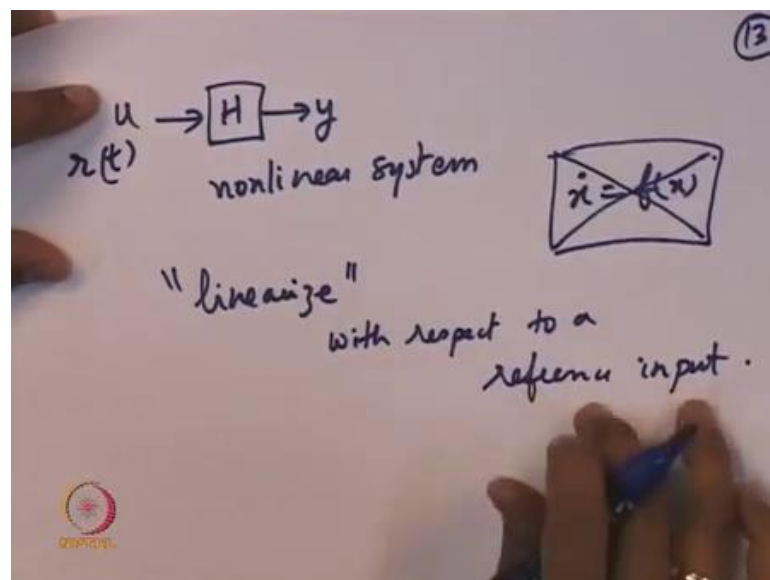 13
u → H → y
r(t)
nonlinear system
ẋ = f(x)
"linearize"
with respect to a
reference input.